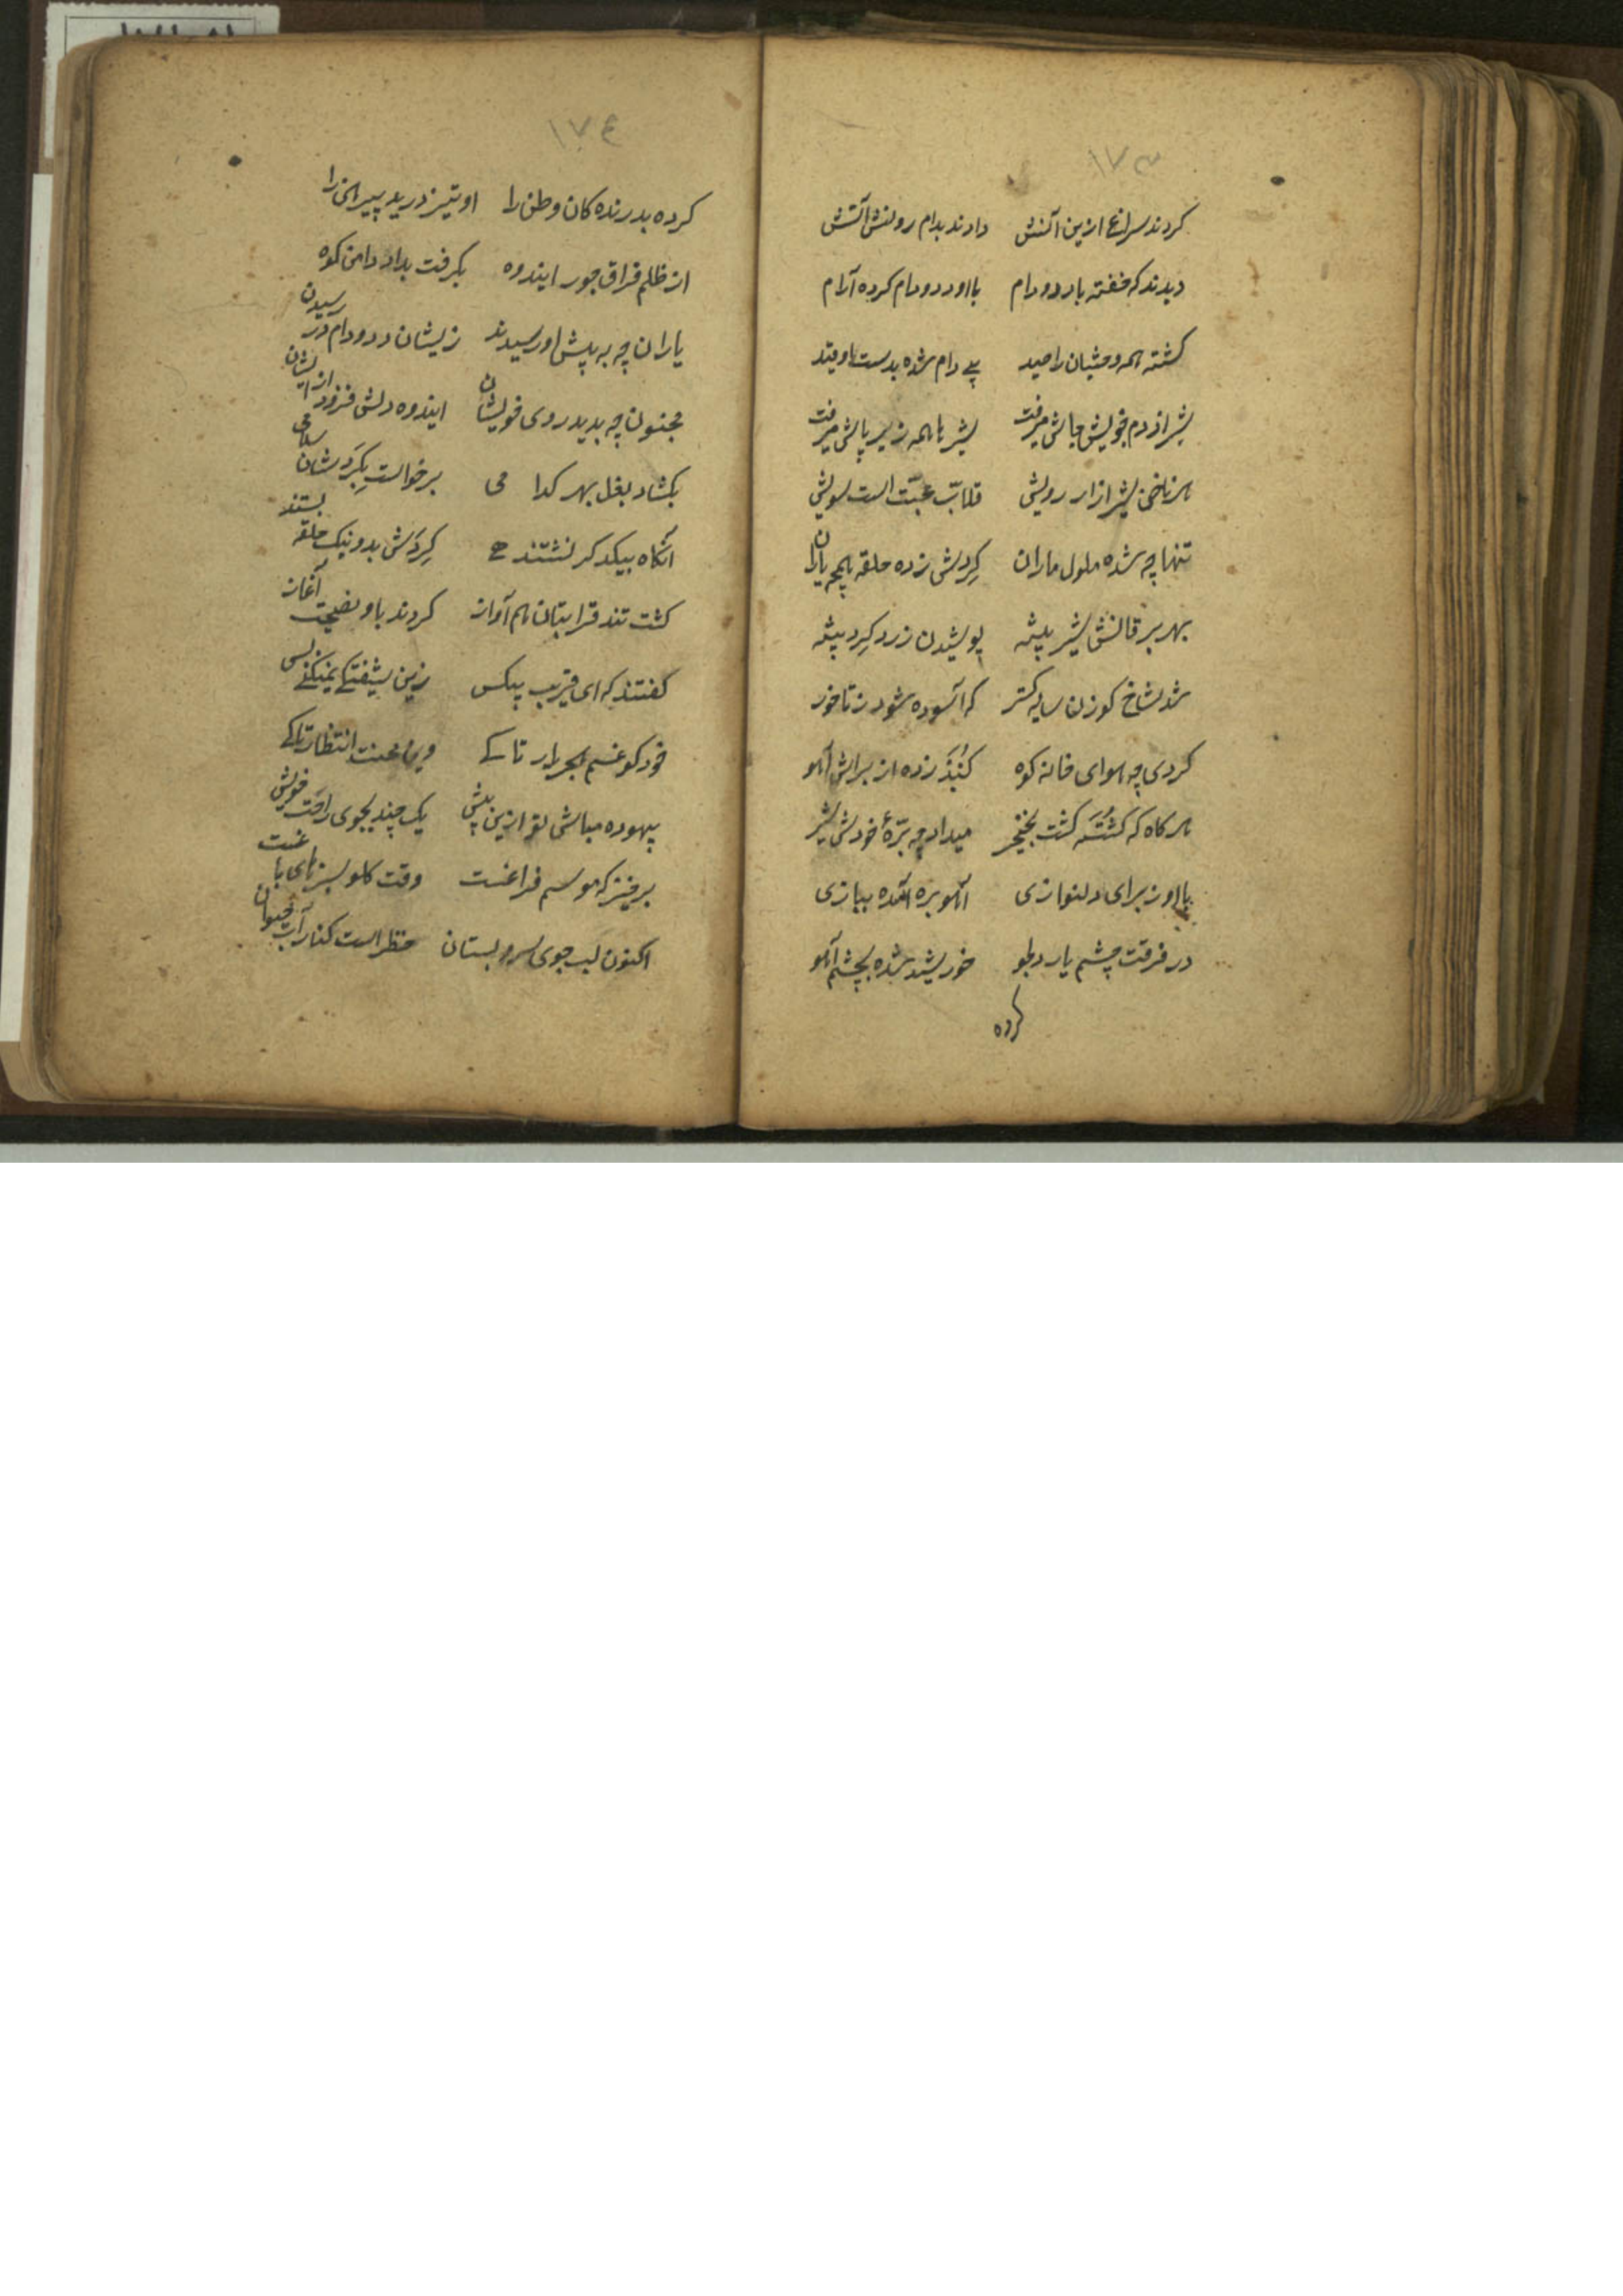 ۱۷۳
کردند سراغ ازین آتش دادند بدام روتش آتش
دیدند که خفته با دد و دام با او دد و دام کرده آرام
کشته همه وحشیان را صید بی دام شده بدست او قید
شیر از دم خویش جاش میرفت شیر با همه زیر پاش میرفت
هر ناخن شیر از رویش قلاب محبت است سویش
تنها چه شده ملول ماران گردش زده حلقه همچه یاران
بهر شیر بیشه پوشیدن زرد کرد پیشه
شد شاخ کوزن سایه کستر که آسوده شود ز تا خور
کردی چه هوای خانه کوه کنبد زده از برایش آهو
هر کاه که کشته کشت نخجیر میداد چه برّهٔ خودش شیر
با او ز برای دلنوازی آهو بره آمده ببازی
در فرقت چشم یار دلجو خورشید شده بچشم آهو
کرده
۱۷۴
کرده بدرنده کان وطن را او تیز درید پیراهن را
از ظلم فراق جور ایندوه بکرفت بداد دامن کوه
یاران چه به پیش او رسیدند زیشان دد و دام در رسیدن
مجنون چه بدید روی خویشان ایندوه دلش فزود از ایشان
بکشاد بغل بهر کدامی برخواست بکردشان سلامی
آنکاه بیکدکر نشتند گردش بدو نیک حلقه بستند
کشتند قرابتان هم آواز کردند باو نصیحت آغاز
کفتند که ای قریب بیکس زین شیفتکی نمیکنی بس
خود کو غم هجر یار تا کی وین محنت انتظار تا کی
بیهوده مباش تو ازین پیش یک چند بجوی راحت خویش
برخیز که موسم فراغست وقت کل و سبزهای باغست
اکنون لب جوی سرو بستان حظر است کنار آب حیوان